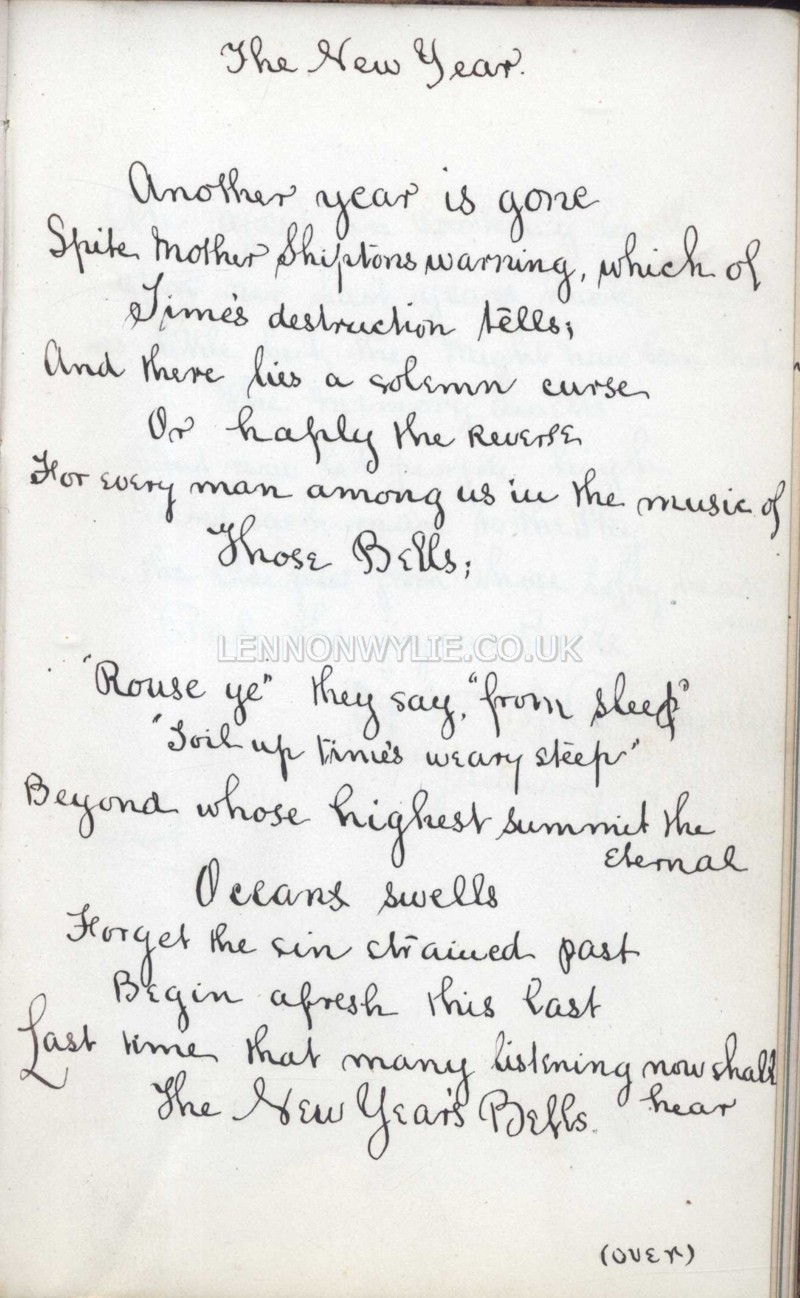 The New Year.
Another year is gone
Spite Mother Shiptons warning, which of
Time's destruction tells;
And there lies a solemn curse
Or haply the Reverse
For every man among us in the music of
Those Bells;
LENNONWYLIE.CO.UK
"Rouse ye" they say, "from sleep"
"Toil up time's weary steep"
Beyond whose highest summit the
Eternal
Oceans swells
Forget the sin strained past
Begin afresh this last
Last time that many listening now shall
hear
The New Year's Bells.
(OVER)